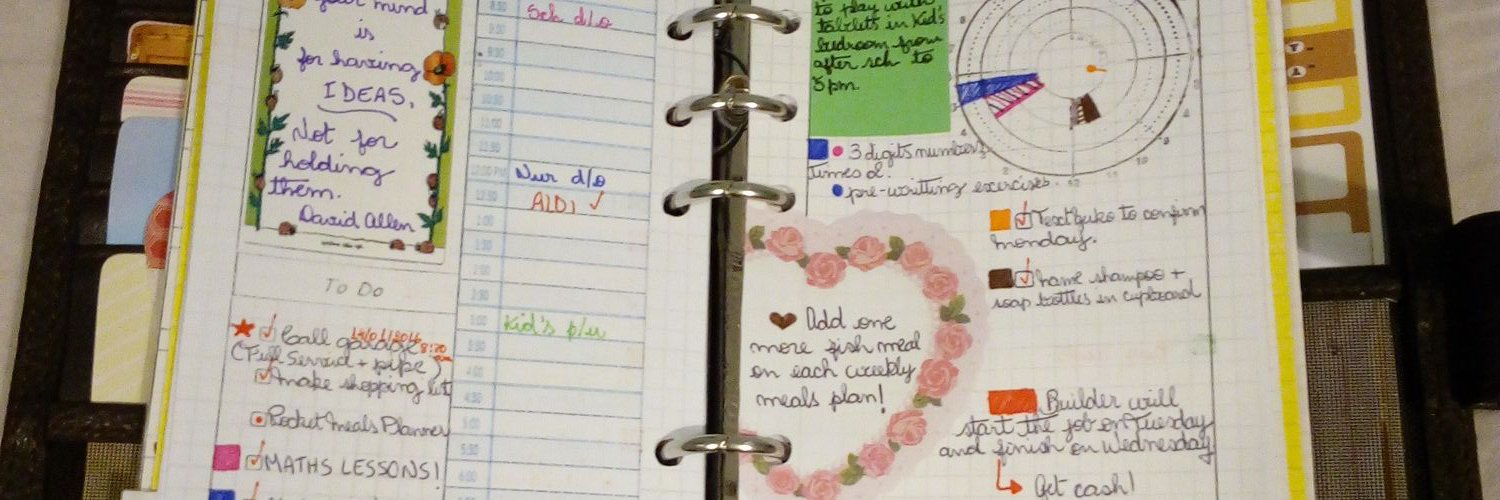 your mind
is
for having
IDEAS,
Not for
holding
them.
David Allen
To Do
Call garage
(Full Service + pipe)
make shopping list
Pocket Meals Planner
MATHS LESSONS!
8:30
Sch d/o
9:00
9:30
10:00
10:30
11:00
11:30
12:00 PM
Nur d/o
12:30
ALDI ✓
1:00
1:30
2:00
2:30
3:00
Kid's p/u
3:30
4:00
4:30
5:00
5:30
6:00
to play with
tablets in Kid's
bedroom from
after sch to
5pm.
3 digits numbers
times 2.
pre-writting exercises.
Text to confirm
monday.
name shampoo +
soap bottles in cupboard
Add one
more fish meal
on each weekly
meals plan!
Builder will
start the job on Tuesday
and finish on Wednesday
Get cash!